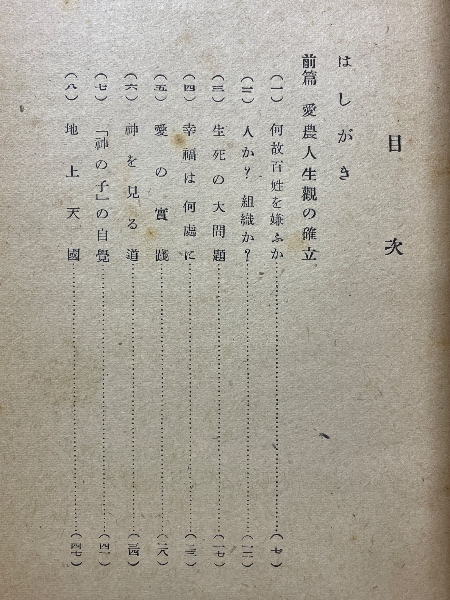 目次
はしがき
前篇 愛農人生觀の確立
(一) 何故百姓を嫌ふか……(七)
(二) 人か?組織か?……(一二)
(三) 生死の大問題……(一七)
(四) 幸福は何處に……(二三)
(五) 愛の實踐……(二八)
(六) 神を見る道……(三四)
(七) 「神の子」の自覺……(四一)
(八) 地上天國……(四七)